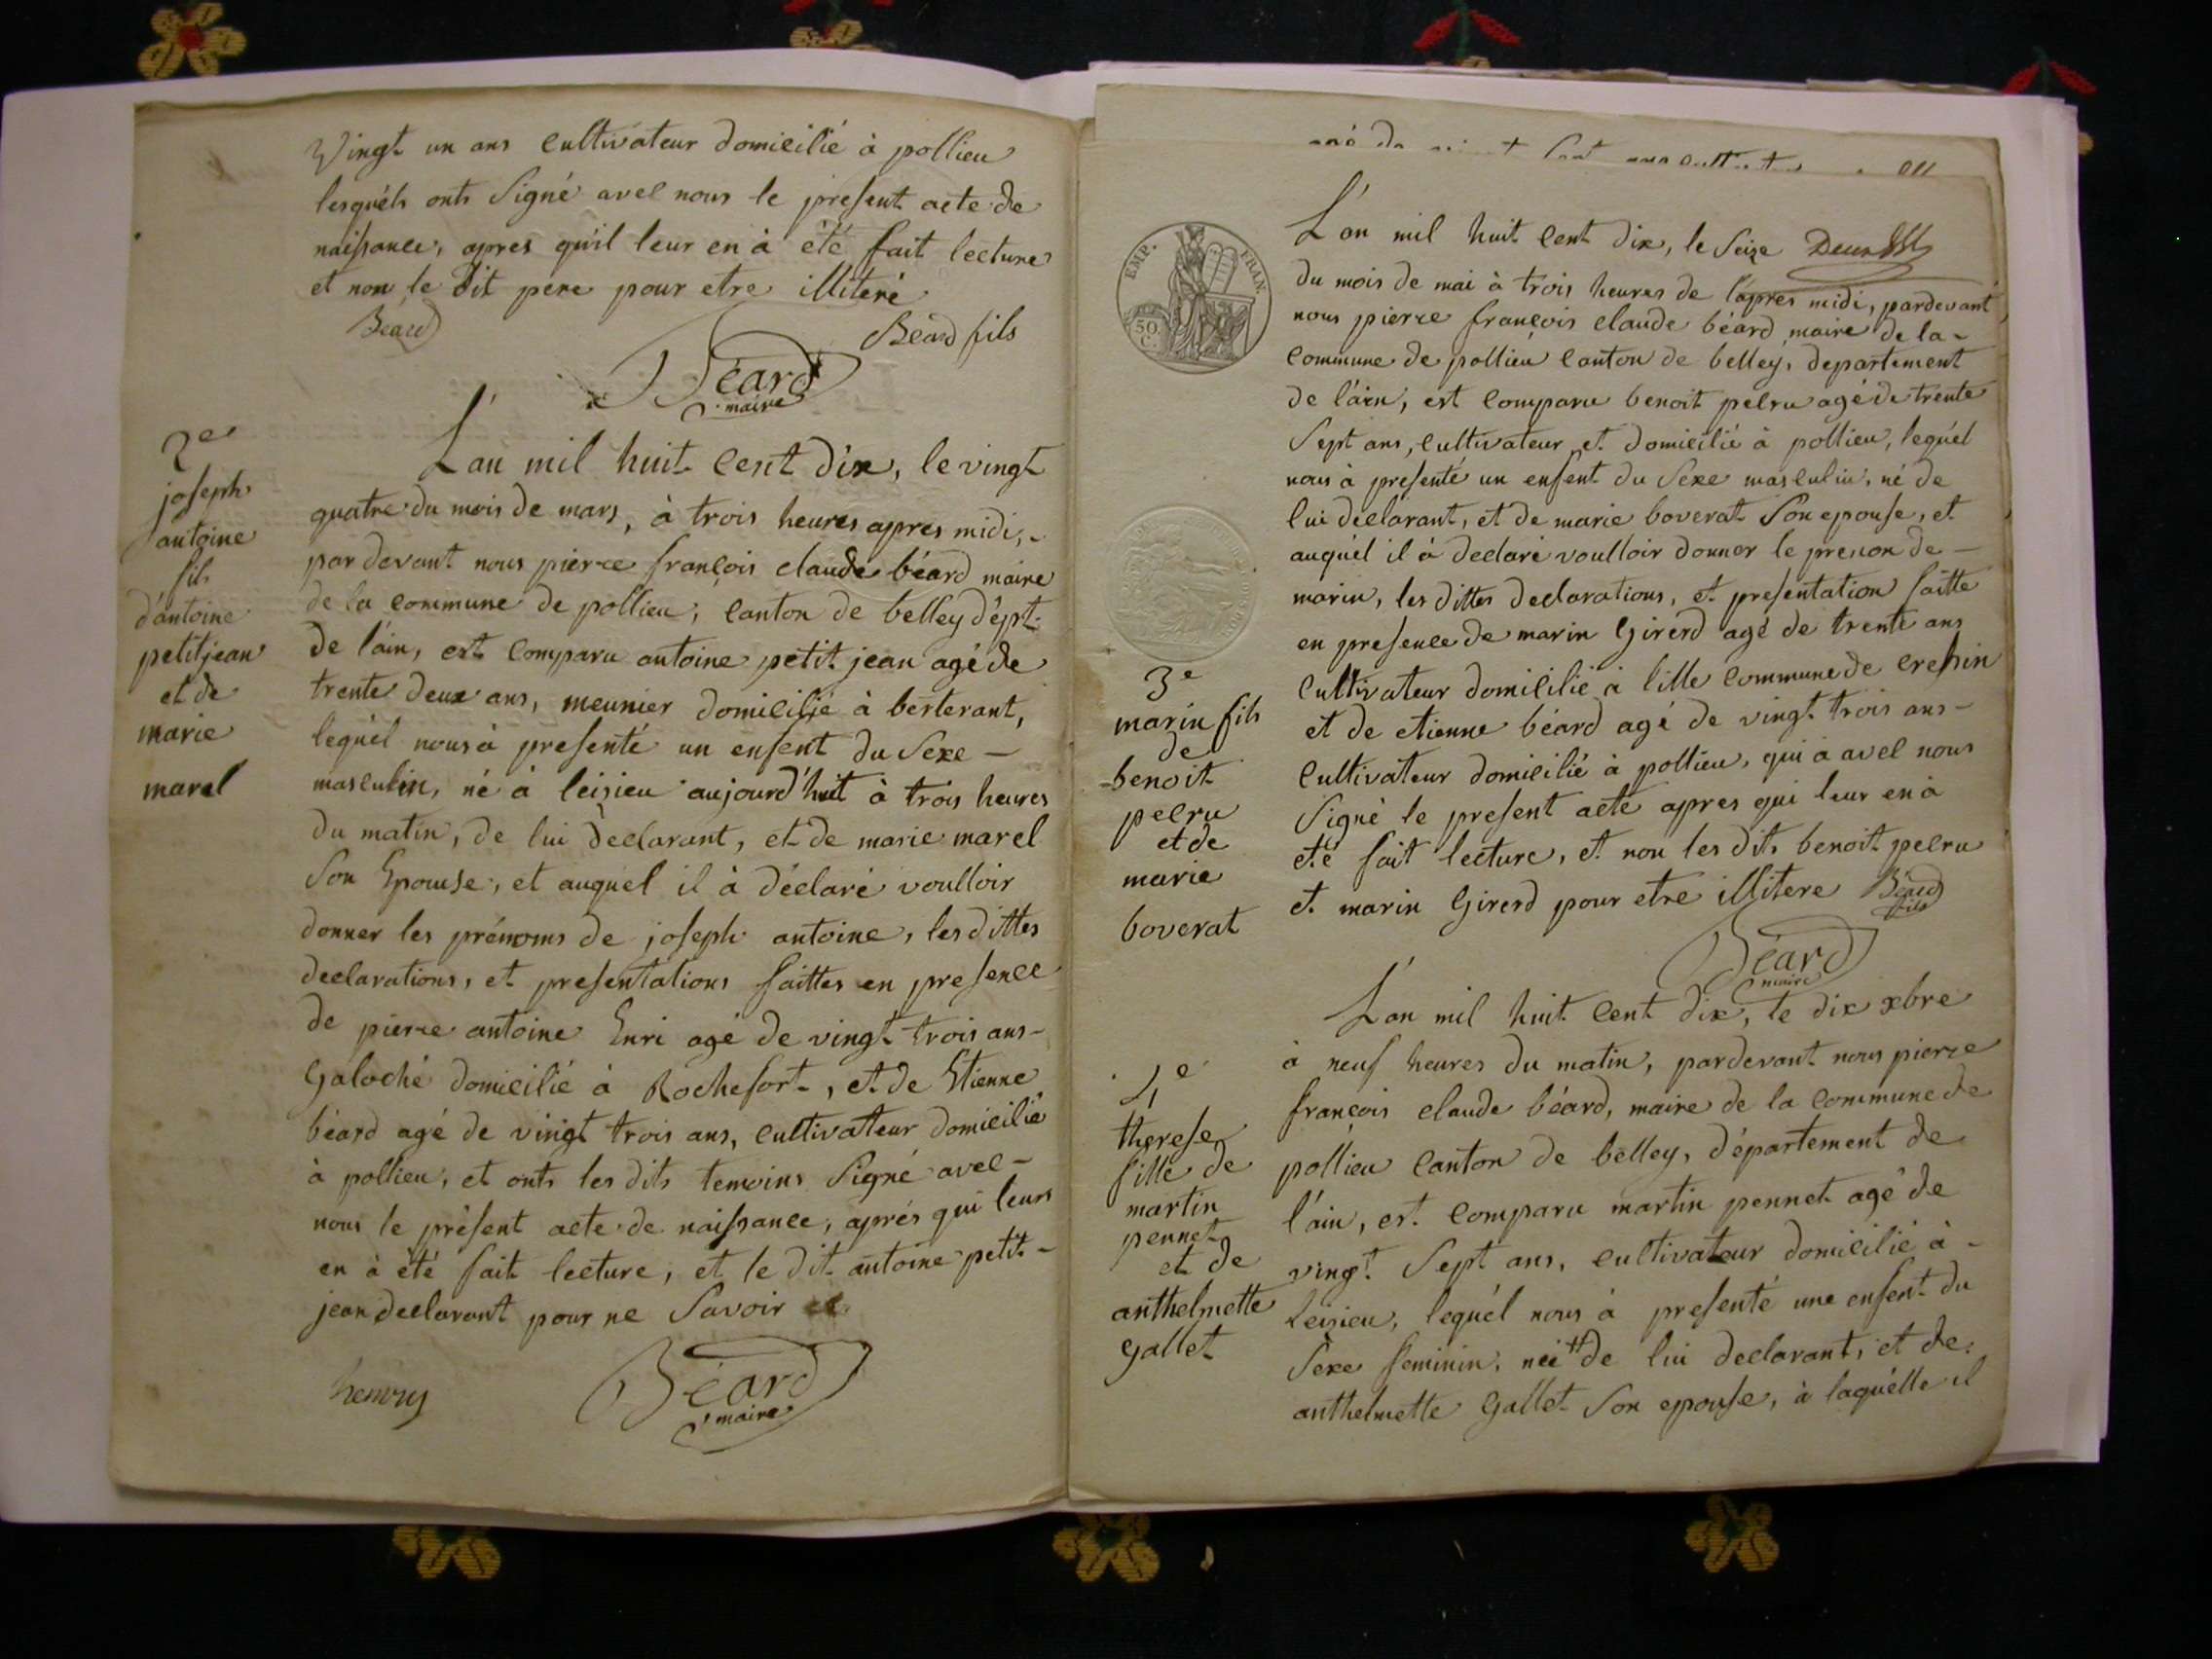 Vingt un ans Cultivateur domicilié à pollieu
lesquéls onts Signé avec nous le present acte de
naissance, apres qu'il leur en à été fait lecture
et non le dit pere pour etre illiteré
Béard
Béard fils
Béard
maire
2e
joseph
antoine
fils
d'antoine
petitjean
et de
marie
marel
L'an mil huit Cent dix, le vingt
quatre du mois de mars, à trois heures apres midi,
par devant nous pierre françois claude béard maire
de la commune de pollieu, Canton de belley dépt.
de l'ain, est Comparu antoine petit jean agé de
trente deux ans, meunier domicilié à berterant,
lequél nous à presenté un enfent du Sexe -
masculin, né à leisieu aujourd'huit à trois heures
du matin, de lui declarant, et de marie marel
Son Epouse, et auquel il à déclaré voulloir
donner les prénoms de joseph antoine, les dittes
declarations, et presentations faittes en presence
de pierre antoine Enri agé de vingt trois ans -
Galoché domicilié à Rochefort, et de Etienne
béard agé de vingt trois ans, Cultivateur domicilié
à pollieu, et onts les dits temoins Signé avec -
nous le présent acte de naissance, aprés qui leurs
en à été fait lecture, et le dit antoine petit -
jean declarant pour ne Savoir
henry
Béard
maire
EMP. FRAN.
50.
C.
L'an mil huit Cent dix, le Seize
du mois de mai à trois heures de l'apres midi, pardevant
nous pierre françois claude béard maire de la -
Commune de pollieu Canton de belley, departement
de l'ain, est Comparu benoit pelru agé de trente
Sept ans, Cultivateur et domicilié à pollieu, lequél
nous à presenté un enfent du Sexe masculin, né de
lui déclarant, et de marie boverat Son epouse, et
auquél il à declaré voulloir donner le prenon de -
marin, les dittes declarations, et presentation faitte
en presence de marin Girerd agé de trente ans
Cultivateur domicilié à lille Commune de cressin
et de etienne béard agé de vingt trois ans -
Cultivateur domicilié à pollieu, qui à avec nous
Signé le present acte apres qui leur en à
été fait lecture, et non les dits benoit pelru
et marin Girerd pour etre illitere
Béard
fils
Béard
maire
3e
marin fils
de
benoit
pelru
et de
marie
boverat
L'an mil huit Cent dix, le dix xbre
à neuf heures du matin, pardevant nous pierre
françois claude béard, maire de la Commune de
pollieu Canton de belley, département de
l'ain, est Comparu martin pennet agé de
vingt Sept ans, Cultivateur domicilié à -
Leisieu, lequél nous à presenté une enfent du
Sexe feminin, neé de lui declarant, et de
anthelmette Gallet Son epouse, à laquélle il
4e
therese
fille de
martin
pennet
et de
anthelmette
gallet